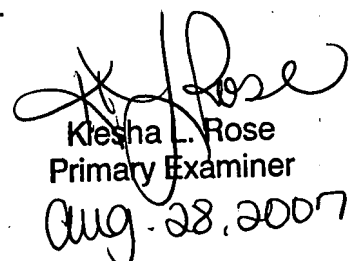 K Rose
Kiesha L. Rose
Primary Examiner
Aug. 28, 2007